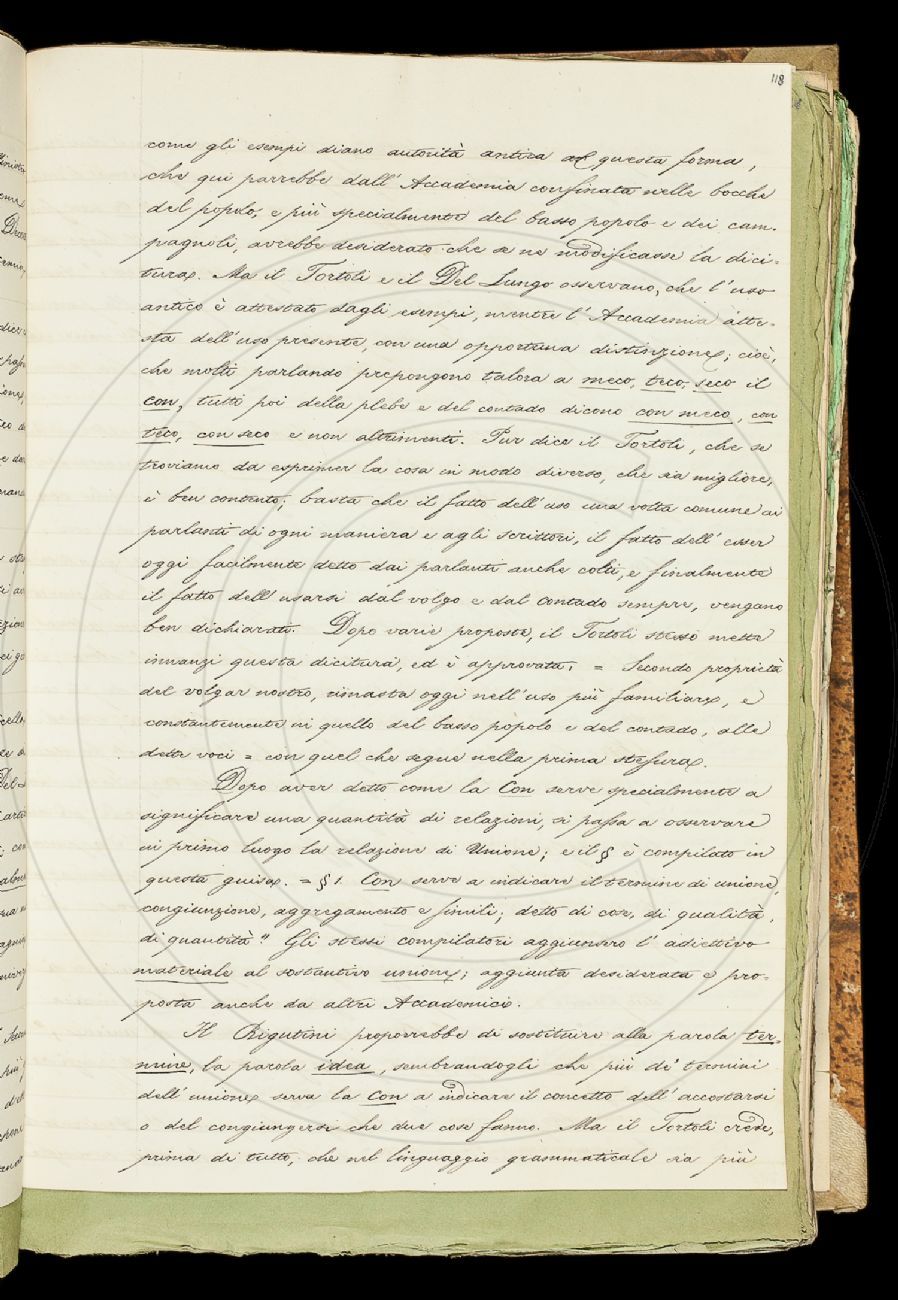 118
come gli esempi diano autorità antica a questa forma,
che qui parrebbe dall'Accademia confinata nelle bocche
del popolo, e più specialmente del basso popolo e dei cam-
pagnoli, avrebbe desiderato che se ne modificasse la dici-
tura. Ma il Tortoli e il Del Lungo osservano, che l'uso
antico è attestato dagli esempi, mentre l'Accademia atte-
sta dell'uso presente, con una opportuna distinzione; cioè,
che molti parlando prepongono talora a meco, teco, seco il
con, tutti poi della plebe e del contado dicono con meco, con
teco, con seco e non altrimenti. Pur dice il Tortoli, che se
troviamo da esprimer la cosa in modo diverso, che sia migliore,
è ben contento; basta che il fatto dell'uso una volta comune ai
parlanti di ogni maniera e agli scrittori, il fatto dell'esser
oggi facilmente detto dai parlanti anche colti, e finalmente
il fatto dell'usarsi dal volgo e dal contado sempre, vengano
ben dichiarati. Dopo varie proposte, il Tortoli stesso mette
innanzi questa dicitura, ed è approvata, = Secondo proprietà
del volgar nostro, rimasta oggi nell'uso più familiare, e
constantemente in quello del basso popolo e del contado, alle
dette voci = con quel che segue nella prima stesura.
Dopo aver detto come la Con serve specialmente a
significare una quantità di relazioni, si passa a osservare
in primo luogo la relazione di Unione; e il § è compilato in
questa guisa. = § 1. Con serve a indicare il termine di unione,
congiunzione, aggregamento e simili; detto di cose, di qualità,
di quantità" Gli stessi compilatori aggiunsero l'adiettivo
materiale al sostantivo unione; aggiunta desiderata e pro-
posta anche da altri Accademici.
Il Rigutini proporrebbe di sostituire alla parola ter-
mine, la parola idea, sembrandogli che più de' termini
dell'unione serva la Con a indicare il concetto dell'accostarsi
o del congiungersi che due cose fanno. Ma il Tortoli crede,
prima di tutto, che nel linguaggio grammaticale sia più